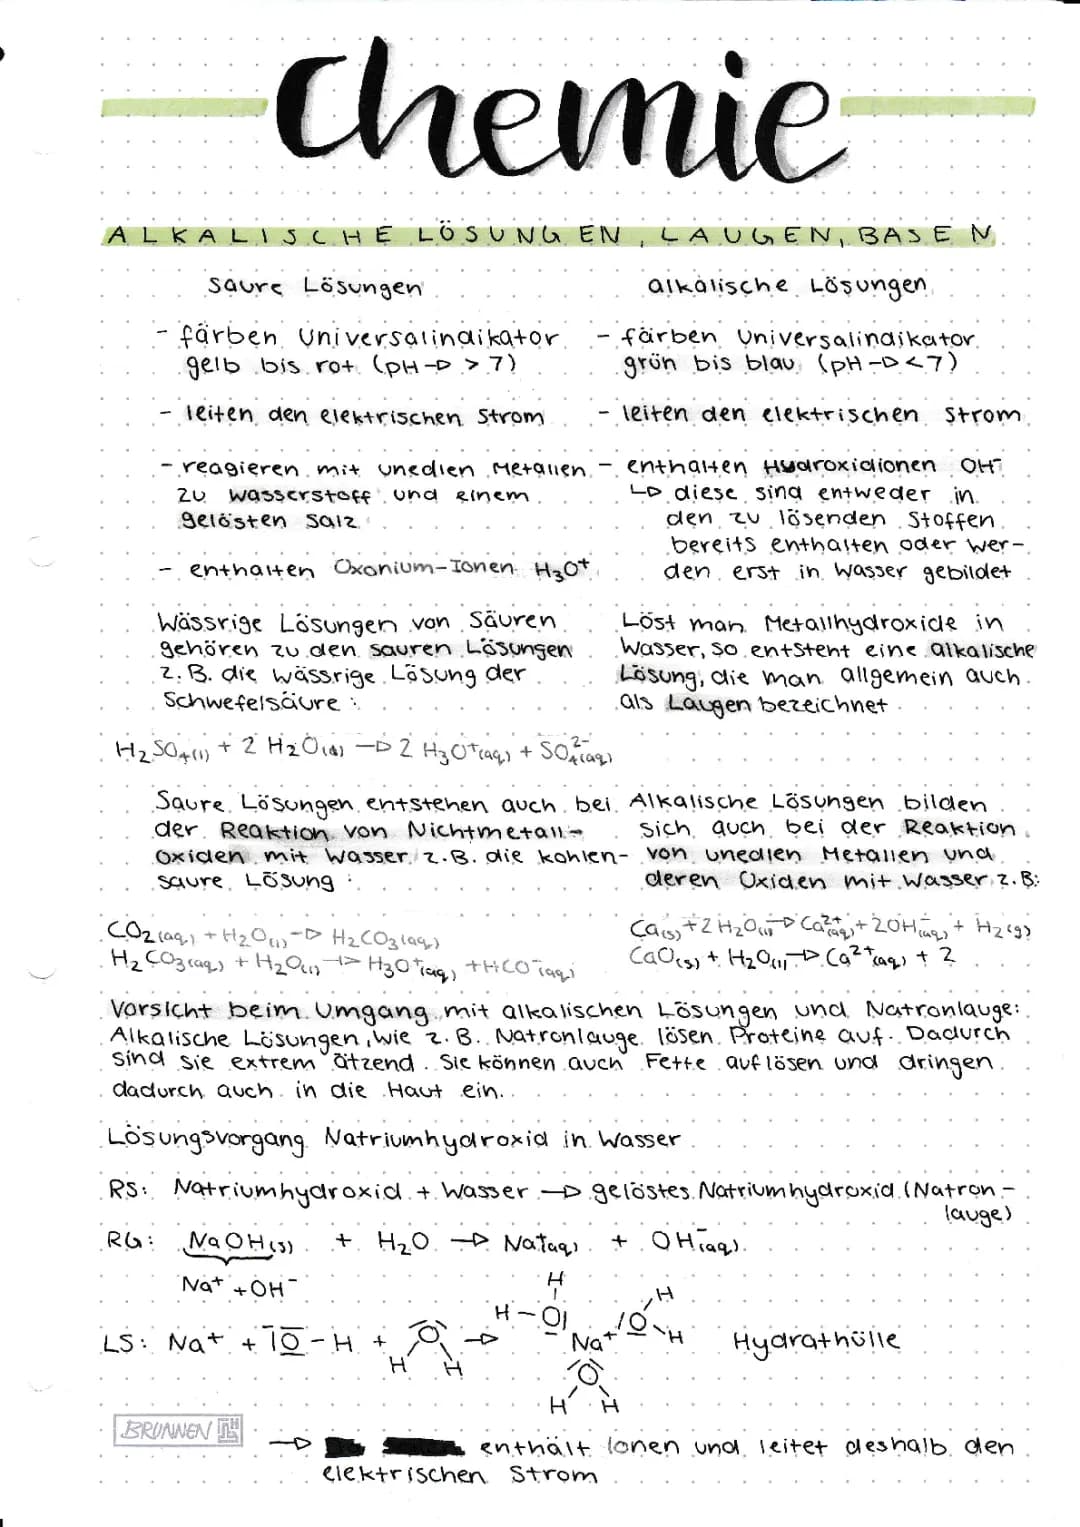 Chemie
ALKALISCHE LÖSUNGEN, LAUGEN, BASEN
saure Lösungen
- färben Universalindikator
gelb bis rot (pH → > 7)
- leiten den elektrischen Strom
- reagieren mit unedlen Metallen
zu Wasserstoff und einem
gelösten Salz
- enthalten Oxonium-Ionen H₃O⁺
alkalische Lösungen
- färben Universalindikator
grün bis blau (pH → < 7)
- leiten den elektrischen Strom
- enthalten Hydroxidionen OH⁻
↳ diese sind entweder in
den zu lösenden Stoffen
bereits enthalten oder wer-
den erst in Wasser gebildet
Wässrige Lösungen von Säuren
gehören zu den sauren Lösungen
z.B. die wässrige Lösung der
Schwefelsäure:
H₂SO₄(l) + 2 H₂O(l) → 2 H₃O⁺(aq) + SO₄²⁻(aq)
Löst man Metallhydroxide in
Wasser, so entsteht eine alkalische
Lösung, die man allgemein auch
als Laugen bezeichnet.
Saure Lösungen entstehen auch bei
der Reaktion von Nichtmetall-
Oxiden mit Wasser, z.B. die kohlen-
saure Lösung:
CO₂(aq) + H₂O(l) → H₂CO₃(aq)
H₂CO₃(aq) + H₂O(l) → H₃O⁺(aq) + HCO⁻(aq)
Alkalische Lösungen bilden
sich auch bei der Reaktion
von unedlen Metallen und
deren Oxiden mit Wasser, z.B:
Ca(s) + 2 H₂O(l) → Ca²⁺(aq) + 2OH⁻(aq) + H₂(g)
CaO(s) + H₂O(l) → Ca²⁺(aq) + 2
Vorsicht beim Umgang mit alkalischen Lösungen und Natronlauge:
Alkalische Lösungen, wie z.B. Natronlauge lösen Proteine auf. Dadurch
sind sie extrem ätzend. Sie können auch Fette auflösen und dringen
dadurch auch in die Haut ein.
Lösungsvorgang Natriumhydroxid in Wasser
RS: Natriumhydroxid + Wasser → gelöstes Natriumhydroxid (Natron-
lauge)
RG: NaOH(s) + H₂O → Na⁺(aq) + OH⁻(aq)
Na⁺ + OH⁻
H
H-O
H
LS: Na⁺ + O-H + O → Na⁺ O H Hydrathülle
H H
O
H H
BRUNNEN
→ enthält Ionen und leitet deshalb den
elektrischen Strom